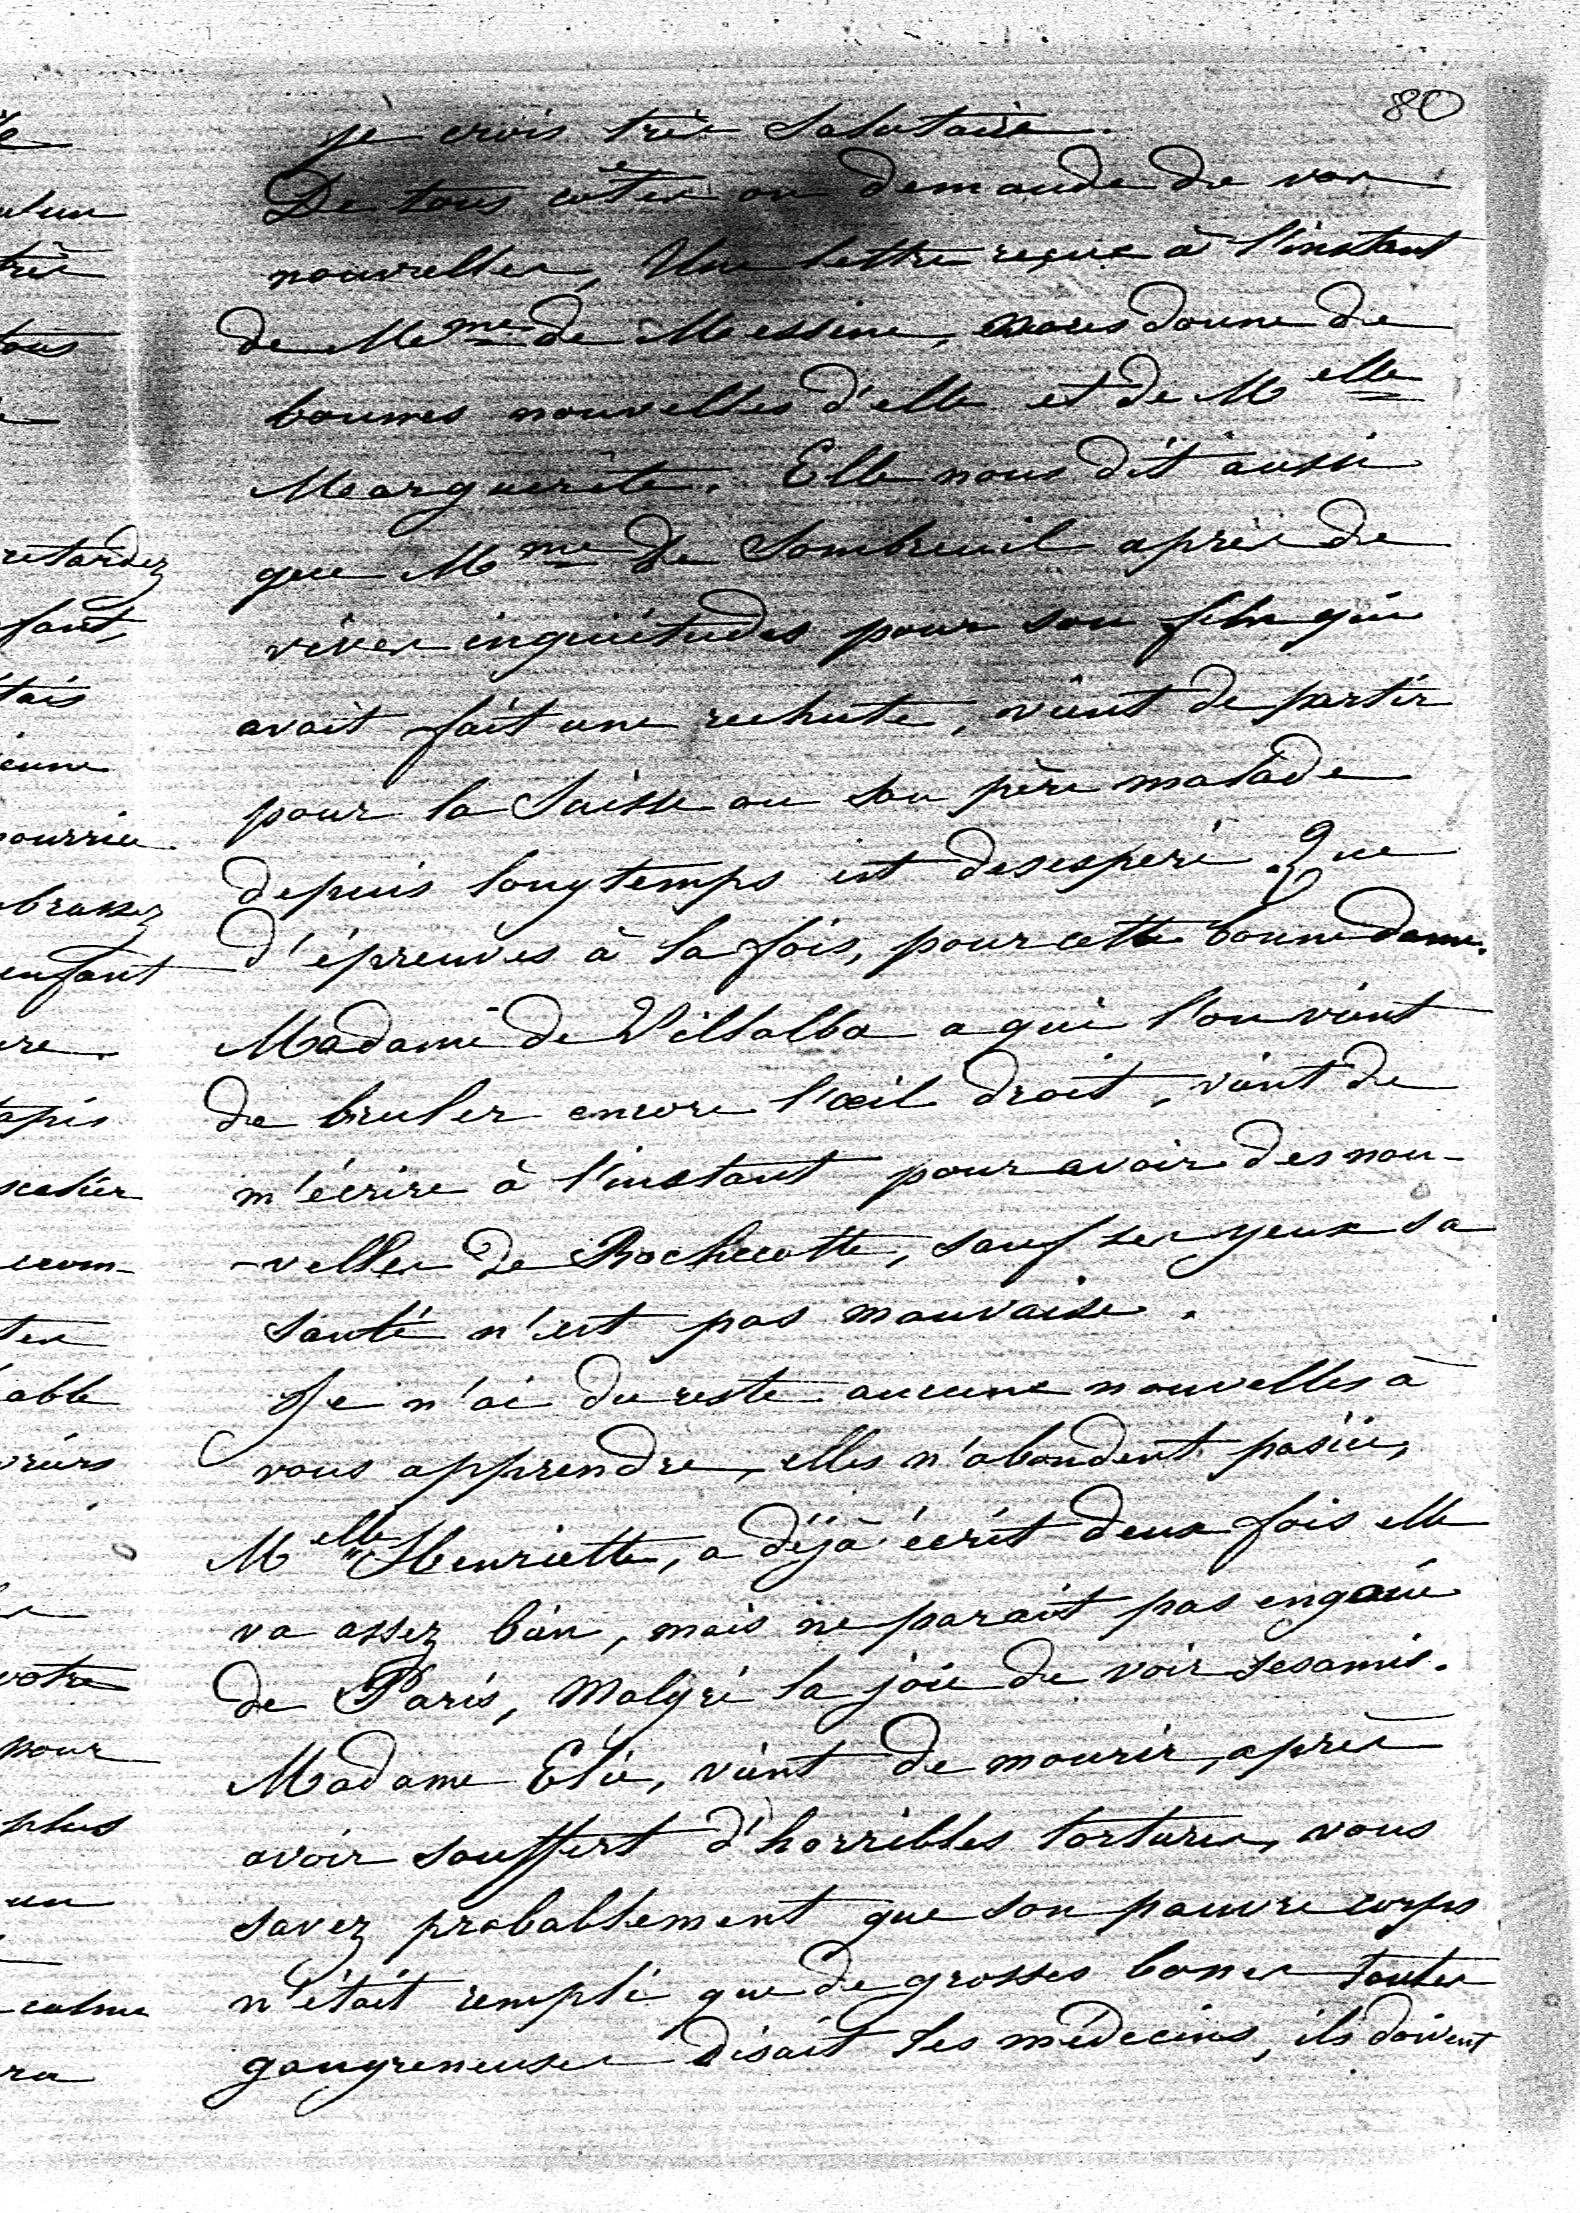 80
je crois très salutaire.
De tous côtés on demande de vos
nouvelles, Une lettre reçue à l'instant
de Mme de Messine, nous donne de
bonnes nouvelles d'elle et de Melle
Marguerite. Elle nous dit aussi
que Mme de Sombreuil après de
vives inquiétudes pour son fils qui
avait fait une rechute, vient de partir
pour la Suisse ou son père malade
depuis longtemps est desesperé. Que
d'épreuves à la fois, pour cette bonne dame.
Madame de Villalba a qui l'on vient
de bruler encore l'œil droit, vient de
m'écrire à l'instant pour avoir des nou-
-velles de Rochecotte, sauf ses yeux sa
santé n'est pas mauvaise.
Je n'ai du reste aucune nouvelles à
vous apprendre, elles n'abondent pas ici,
Melle Henriette, a déjà écrit deux fois elle
va assez bien, mais ne parait pas engouée
de Paris, malgré la joie de voir ses amis.
Madame Elie, vient de mourir, après
avoir souffert d'horribles tortures, vous
savez probablement que son pauvre corps
n'était rempli que de grosses boses toutes
gangreneuses disait les médecins, ils doivent
retardez
fant,
tais
brassez
enfant
apis
able
votre
pour
plus
un
calme
ra